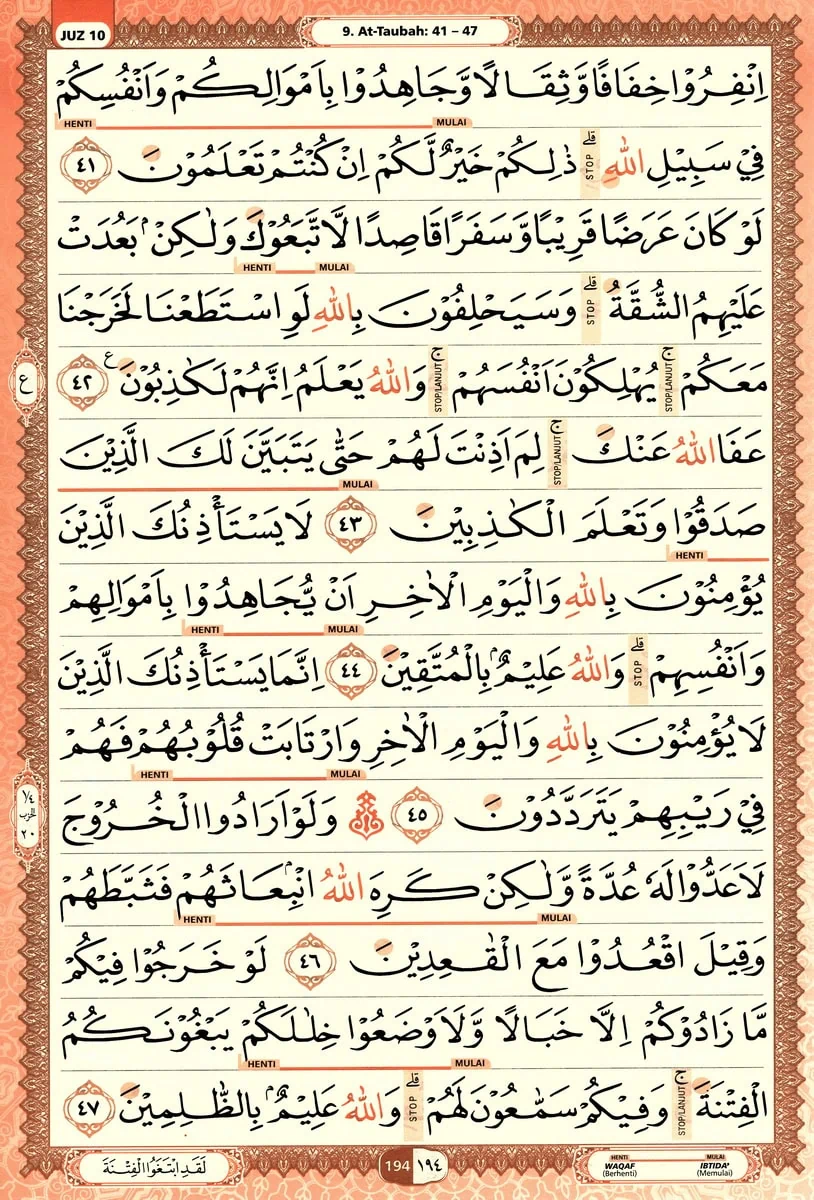 JUZ 10
9. At-Taubah: 41 – 47
اِنْفِرُوْا خِفَافًا وَّثِقَالًا وَّجَاهِدُوْا بِاَمْوَالِكُمْ وَاَنْفُسِكُمْ
MULAI HENTI
فِيْ سَبِيْلِ اللّٰهِ ۗ STOP ذٰلِكُمْ خَيْرٌ لَّكُمْ اِنْ كُنْتُمْ تَعْلَمُوْنَ ٤١
لَوْ كَانَ عَرَضًا قَرِيْبًا وَّسَفَرًا قَاصِدًا لَّاتَّبَعُوْكَ وَلٰكِنْۢ بَعُدَتْ
MULAI HENTI
عَلَيْهِمُ الشُّقَّةُ ۗ STOP وَسَيَحْلِفُوْنَ بِاللّٰهِ لَوِ اسْتَطَعْنَا لَخَرَجْنَا
مَعَكُمْ ۚ STOP/LANJUT يُهْلِكُوْنَ اَنْفُسَهُمْ ۚ STOP/LANJUT وَاللّٰهُ يَعْلَمُ اِنَّهُمْ لَكٰذِبُوْنَ ࣖ ٤٢
ع
عَفَا اللّٰهُ عَنْكَ ۚ STOP/LANJUT لِمَ اَذِنْتَ لَهُمْ حَتّٰى يَتَبَيَّنَ لَكَ الَّذِيْنَ
MULAI
صَدَقُوْا وَتَعْلَمَ الْكٰذِبِيْنَ ٤٣ لَا يَسْتَأْذِنُكَ الَّذِيْنَ
HENTI
يُؤْمِنُوْنَ بِاللّٰهِ وَالْيَوْمِ الْاٰخِرِ اَنْ يُّجَاهِدُوْا بِاَمْوَالِهِمْ
MULAI HENTI
وَاَنْفُسِهِمْ ۗ STOP وَاللّٰهُ عَلِيْمٌۢ بِالْمُتَّقِيْنَ ٤٤ اِنَّمَا يَسْتَأْذِنُكَ الَّذِيْنَ
لَا يُؤْمِنُوْنَ بِاللّٰهِ وَالْيَوْمِ الْاٰخِرِ وَارْتَابَتْ قُلُوْبُهُمْ فَهُمْ
MULAI HENTI
فِيْ رَيْبِهِمْ يَتَرَدَّدُوْنَ ٤٥ ۞ وَلَوْ اَرَادُوا الْخُرُوْجَ
١/٤
الحزب
٢٠
لَاَعَدُّوْا لَهٗ عُدَّةً وَّلٰكِنْ كَرِهَ اللّٰهُ انْۢبِعَاثَهُمْ فَثَبَّطَهُمْ
MULAI HENTI
وَقِيْلَ اقْعُدُوْا مَعَ الْقٰعِدِيْنَ ٤٦ لَوْ خَرَجُوْا فِيْكُمْ
مَّا زَادُوْكُمْ اِلَّا خَبَالًا وَّلَاَوْضَعُوْا خِلٰلَكُمْ يَبْغُوْنَكُمُ
MULAI HENTI
الْفِتْنَةَ ۚ STOP/LANJUT وَفِيْكُمْ سَمّٰعُوْنَ لَهُمْ ۗ STOP وَاللّٰهُ عَلِيْمٌۢ بِالظّٰلِمِيْنَ ٤٧
لَقَدِ ابْتَغَوُا الْفِتْنَةَ
194 ١٩٤
HENTI MULAI
WAQAF IBTIDA'
(Berhenti) (Memulai)